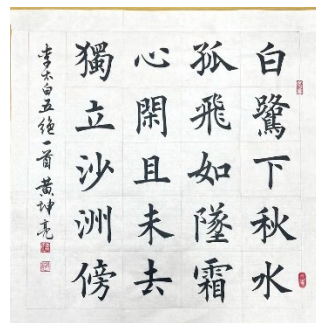 白鷺下秋水
孤飛如墜霜
心閑且未去
獨立沙洲傍
李太白五絕一首 黃坤亮